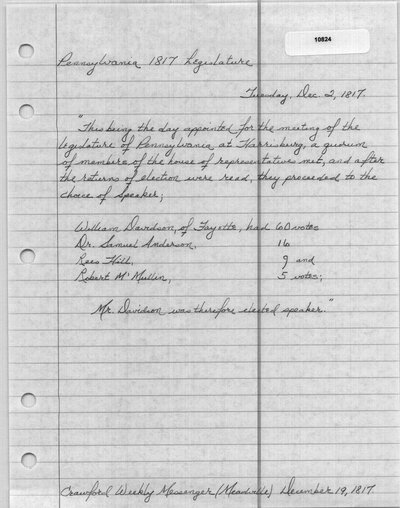 10824
Pennsylvania 1817 Legislature
Tuesday, Dec. 2, 1817.
"This being the day appointed for the meeting of the
legislature of Pennsylvania at Harrisburg, a quorum
of members of the house of representatives met, and after
the returns of election were read, they proceeded to the
choice of Speaker;
William Davidson, of Fayette, had 60 votes
Dr. Samuel Anderson, 16
Rees Hill, 9 and
Robert McMullin, 5 votes;
Mr. Davidson was therefore elected speaker."
Crawford Weekly Messenger (Meadville) December 19, 1817.